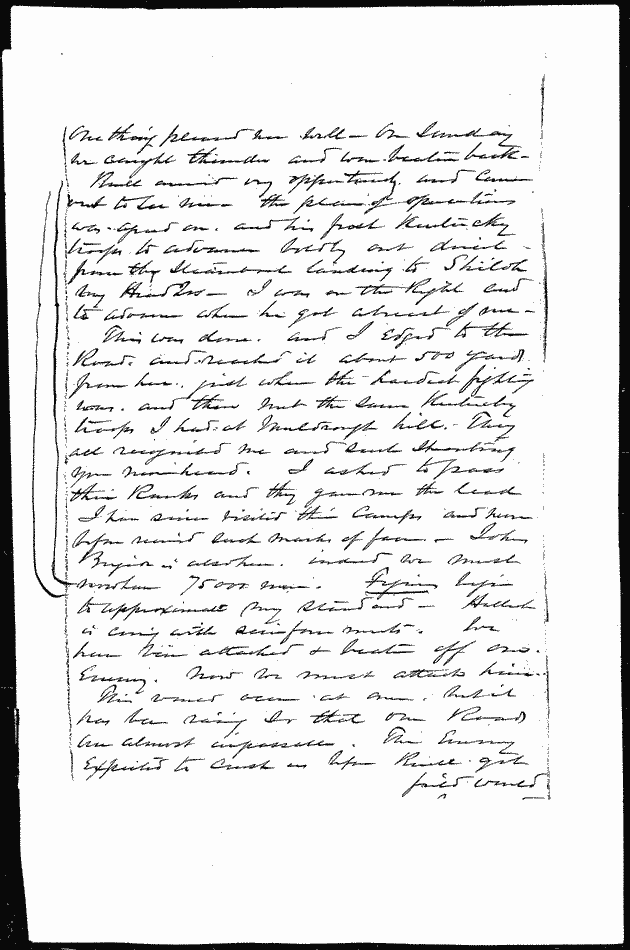 One thing pleased me well – On Sunday
we caught thunder and were beaten back –
Buell arrived very opportunely. and came
out to see me – the plan of operations
was agreed on. and his fresh Kentucky
troops to advance boldly out direct
from the Steamboat landing to Shiloh
my Head Qrs – I was on the Right and
to advance when he got abreast of me –
This was done. and I edged to the
Road. and reached it about 500 yards
from here. just where the hardest fighting
was. and there met the same Kentucky
troops I had at Muldraugh hill. They
all recognized me and such shouting
you never heard. I asked to pass
their Ranks and they gave me the lead
I have since visited their Camps and never
before received such marks of favor – John
is also here. indeed we must
now have 75000 men. Figures begin
to approximate my standard – Halleck
is coming with reinforcements. We
have been attacked & beaten off our
Enemy. Now we must attack him.
This would occur at once. but it
has been raining so that our Roads
are almost impassable. The Enemy
Expected to crush us before Buell got
failed would